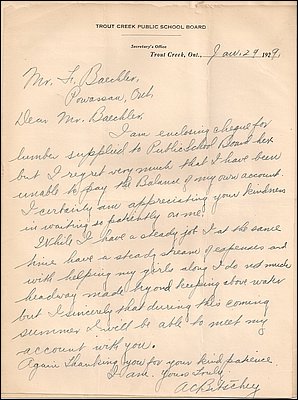 TROUT CREEK PUBLIC SCHOOL BOARD
Secretary's Office
Trout Creek, Ont., Jan. 29 1929.
Mr. F. Baechler,
Powassan, Ont.
Dear Mr. Baechler
I am enclosing cheque for
lumber supplied to Public School Board here
but I regret very much that I have been
unable to pay the Balance of my own account.
I certainly am appreciating your kindness
in waiting so patiently on me.
While I have a steady job I at the same
time have a steady stream of expenses and
with helping my girls along I do not much
headway made beyond keeping above water
but I sincerely that during this coming
summer I will be able to meet my
account with you.
Again thanking you for your kind patience
I am. Yours truly.